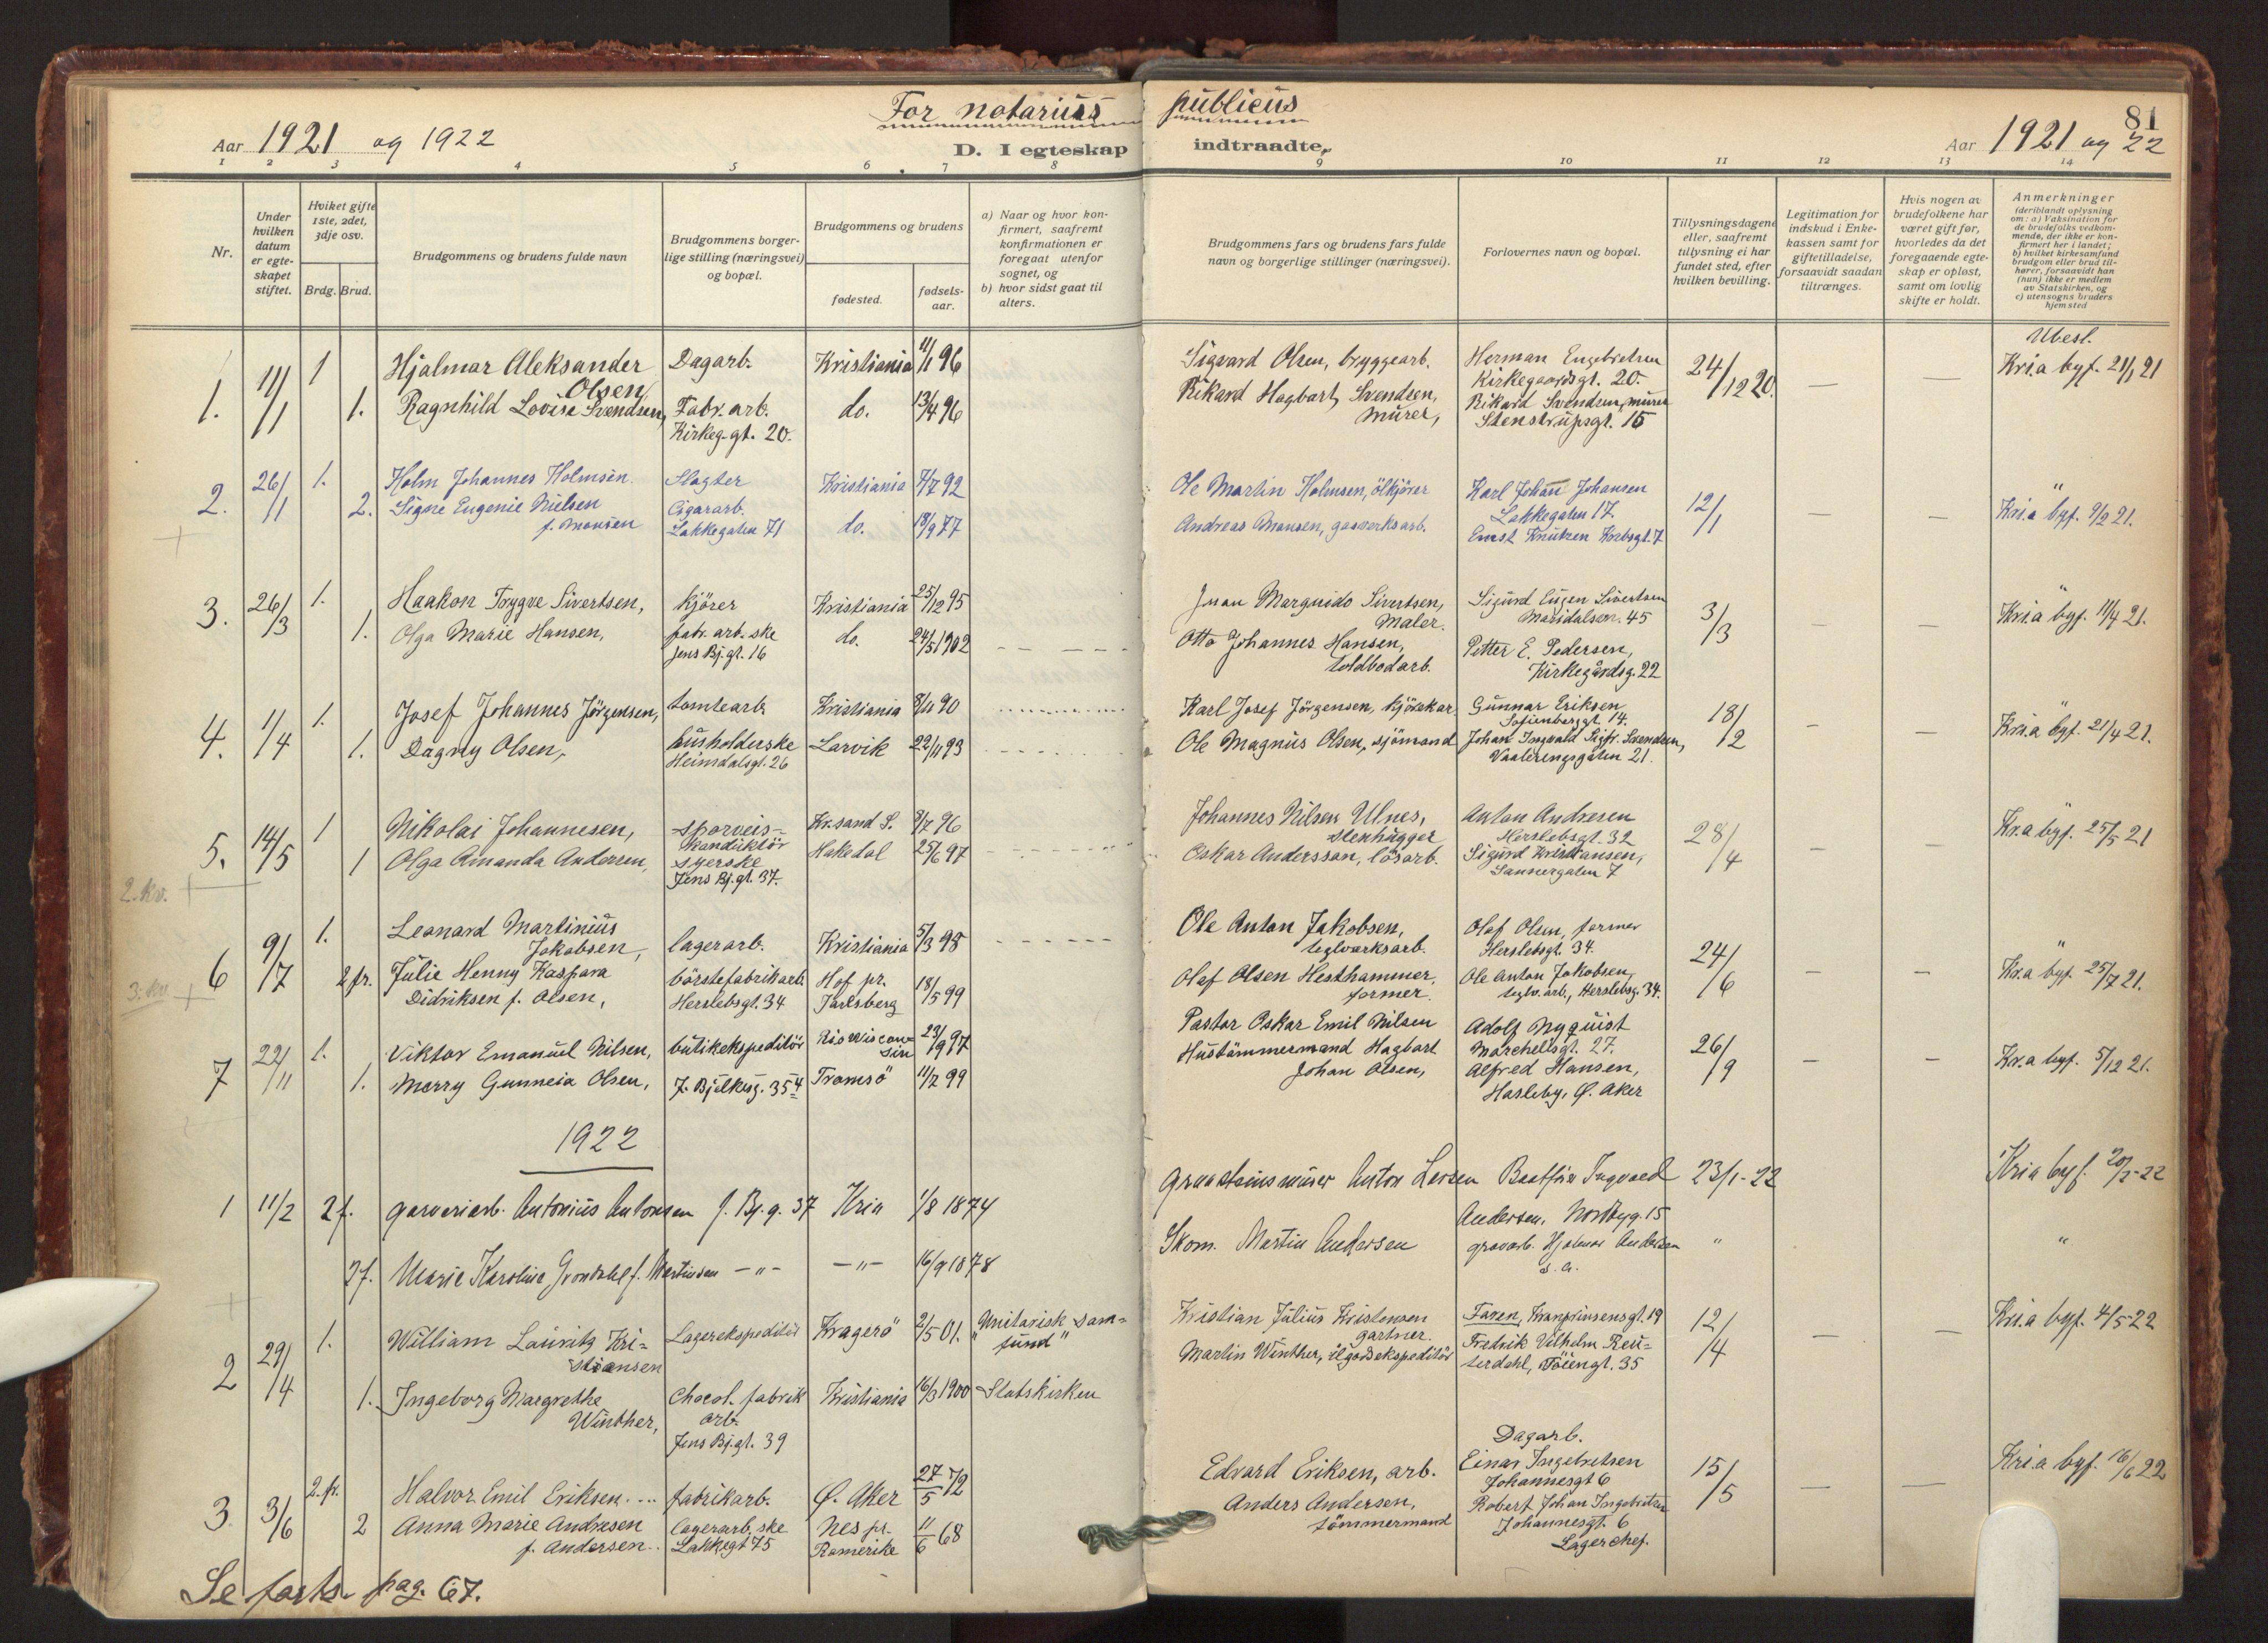 For notarius publicus
81
Aar 1921 og 1922
D. I egteskap indtraadte.
Aar 1921 og 22
1 2 3 4 5 6 7 8 9 10 11 12 13 14
Nr.
Under hvilken datum er egteskapet stiftet.
Hviket gifte 1ste, 2det, 3dje osv.
Brdg. Brud.
Brudgommens og brudens fulde navn
Brudgommens borgerlige stilling (næringsvei) og bopæl.
Brudgommens og brudens
fødested.
fødselsaar.
a) Naar og hvor konfirmert, saafremt konfirmationen er foregaat utenfor sognet, og
b) hvor sidst gaat til alters.
Brudgommens fars og brudens fars fulde navn og borgerlige stillinger (næringsvei).
Forlovernes navn og bopæl.
Tillysningsdagene eller, saafremt tillysning ei har fundet sted, efter hvilken bevilling.
Legitimation for indskud i Enkekassen samt for giftetilladelse, forsaavidt saadan tiltrænges.
Hvis nogen av brudefolkene har været gift før, hvorledes da det foregaaende egteskap er opløst, samt om lovlig skifte er holdt.
Anmerkninger
(deriblandt oplysning om: a) Vaksination for de brudefolks vedkommende, der ikke er konfirmert her i landet; b) hvilket kirkesamfund brudgom eller brud tilhører, forsaavidt han (hun) ikke er medlem av Statskirken, og c) utensogns bruders hjemsted
1. 11/1 1 Hjalmar Aleksander Olsen Dagarb. Kristiania 11/1 96
Sigvard Olsen, bryggearb. Herman Engebretsen Kirkegaardsgt. 20. 24/12 20. — — Ubesl. Kri.a byf. 21/1 21
1. Ragnhild Lovise Svendsen, Fabr. arb. Kirkeg.gt. 20. do. 13/4 96
Rikard Hagbart Svendsen, murer, Rikard Svendsen, murer Stenstrupsgt. 15
2. 26/1 1. Holm Johannes Holmsen. Slagter Kristiania 7/7 92
Ole Martin Holmsen, ölkjörer Karl Johan Johansen Lakkegaten 17. 12/1 — — " Kri.a byf. 9/2 21.
2. Signe Eugenie Nielsen f. Monsen Cigararb. Lakkegaten 71 do. 18/9 77
Andreas Monsen, gasverksarb. Ernst Knutzen Krebsgt. 7
3. 26/3 1. Haakon Trygve Sivertsen, Kjörer Kristiania 25/12 95
Juan Marguido Sivertsen, Maler. Sigurd Eugen Sivertsen Maridalsvn. 45 3/3 — — " Kri.a byf. 11/4 21.
1. Olga Marie Hansen, fabr. arb.ske Jens Bj.gt. 16 do. 24/5 1902
Otto Johannes Hansen, toldbodarb. Petter E. Pedersen, Kirkegårdsg. 22
4. 1/4 1. Josef Johannes Jörgensen, tomtearb. Kristiania 8/11 90
Karl Josef Jörgensen, kjörekar. Gunnar Eriksen Sofienberggt. 14. 18/2 - — " Kri.a byf. 21/4 21.
1. Dagny Olsen, husholderske Heimdalsgt. 26 Larvik 22/11 93
Ole Magnus Olsen, sjömand Johan Ingvald Sigfr. Svendsen, Vaalerengsgaten 21.
5. 14/5 1 Nikolai Johannesen, Sporveiskonduktör Kr.sand S. 8/7 96
Johannes Nilsen Ulnes, Stenhugger Anton Andresen Herslebsgt. 32 28/4 — — " Kr.a byf. 25/5 21
1 Olga Amanda Andersen, syerske Jens Bj.gt. 37. Hakedal 25/6 97
Oskar Andersson, lösarb. Sigurd Kristiansen, Sannergaten 7
2. kv. +
6 9/7 1. Leonard Martinius Jakobsen, lagerarb. Kristiania 5/3 98
Ole Anton Jakobsen, teglverksarb. Olaf Olsen, former Herslebsgt. 34. 24/6 — — " Kr.a byf. 25/7 21.
2 fr. Julie Henny Kaspara Didriksen f. Olsen, börstefabrikarb. Herslebsgt. 34 Hof pr. Jarlsberg 18/5 99
Olaf Olsen Hesthammer, former. Ole Anton Jakobsen, teglv. arb., Herslebsg. 34.
3. kv +
7 22/11 1. Viktor Emanuel Nilsen, butikekspeditör Rio Wisconsin 23/9 97
Pastor Oskar Emil Nilsen Adolf Nyquist Marchellsgt. 27. 26/9 — — Kr.a byf. 5/12 21.
1. Marry Gunneia Olsen, J. Bjelkesg. 35 4 Tromsö 11/2 99
Hustömmermand Hagbart Johan Olsen, Alfred Hansen, Hasleby, Ø. Aker
1922
1 11/2 2f. garveriarb. Antonius Antonsen J. Bj.g. 37 Kria 1/8 1874
graasteinsmurer Anton Larsen Ingvard Andersen, Nordbyg. 15 23/1-22 Kria byf. 20/2-22
2f. Marie Karoline Grondahl f. Martinsen —"— —"— 16/9 1878
Skom. Martin Andersen gravarb. Hjalmar Andersen s. a. " "
2 29/4 1. William Lauritz Kristiansen Lagerekspeditör Kragerö 2/5 01. Unitarisk "samfund"
Kristian Julius Kristensen gartner. Faren, Kronprinsensgt. 19 12/4 — — Kri.a byf. 4/5 22
1. Ingeborg Margrethe Winther, Chocol. fabrik arb. Jens Bj.gt. 39 Kristiania 16/3 1900 Statskirken
Martin Winther, ilgodsekspeditör Fredrik Vilhelm Reuterdahl, Töiengt. 35
3. 3/6 2. fr. Halvor Emil Eriksen.... fabrikarb. Ø. Aker 27/5 72
Edvard Eriksen, arb. Dagarb. Einar Ingebretsen Johannesgt 6 15/5 — — Kri.a byf. 16/6 22
2 Anna Marie Andresen f. Andersen.. lagerarb.ske Lakkegt 75 Nes pr. Romerike 11/6 68
Anders Andersen, tömmermand Robert Johan Ingebretsen Johannesgt. 6 Lagerchef.
Se forts. pag. 67.